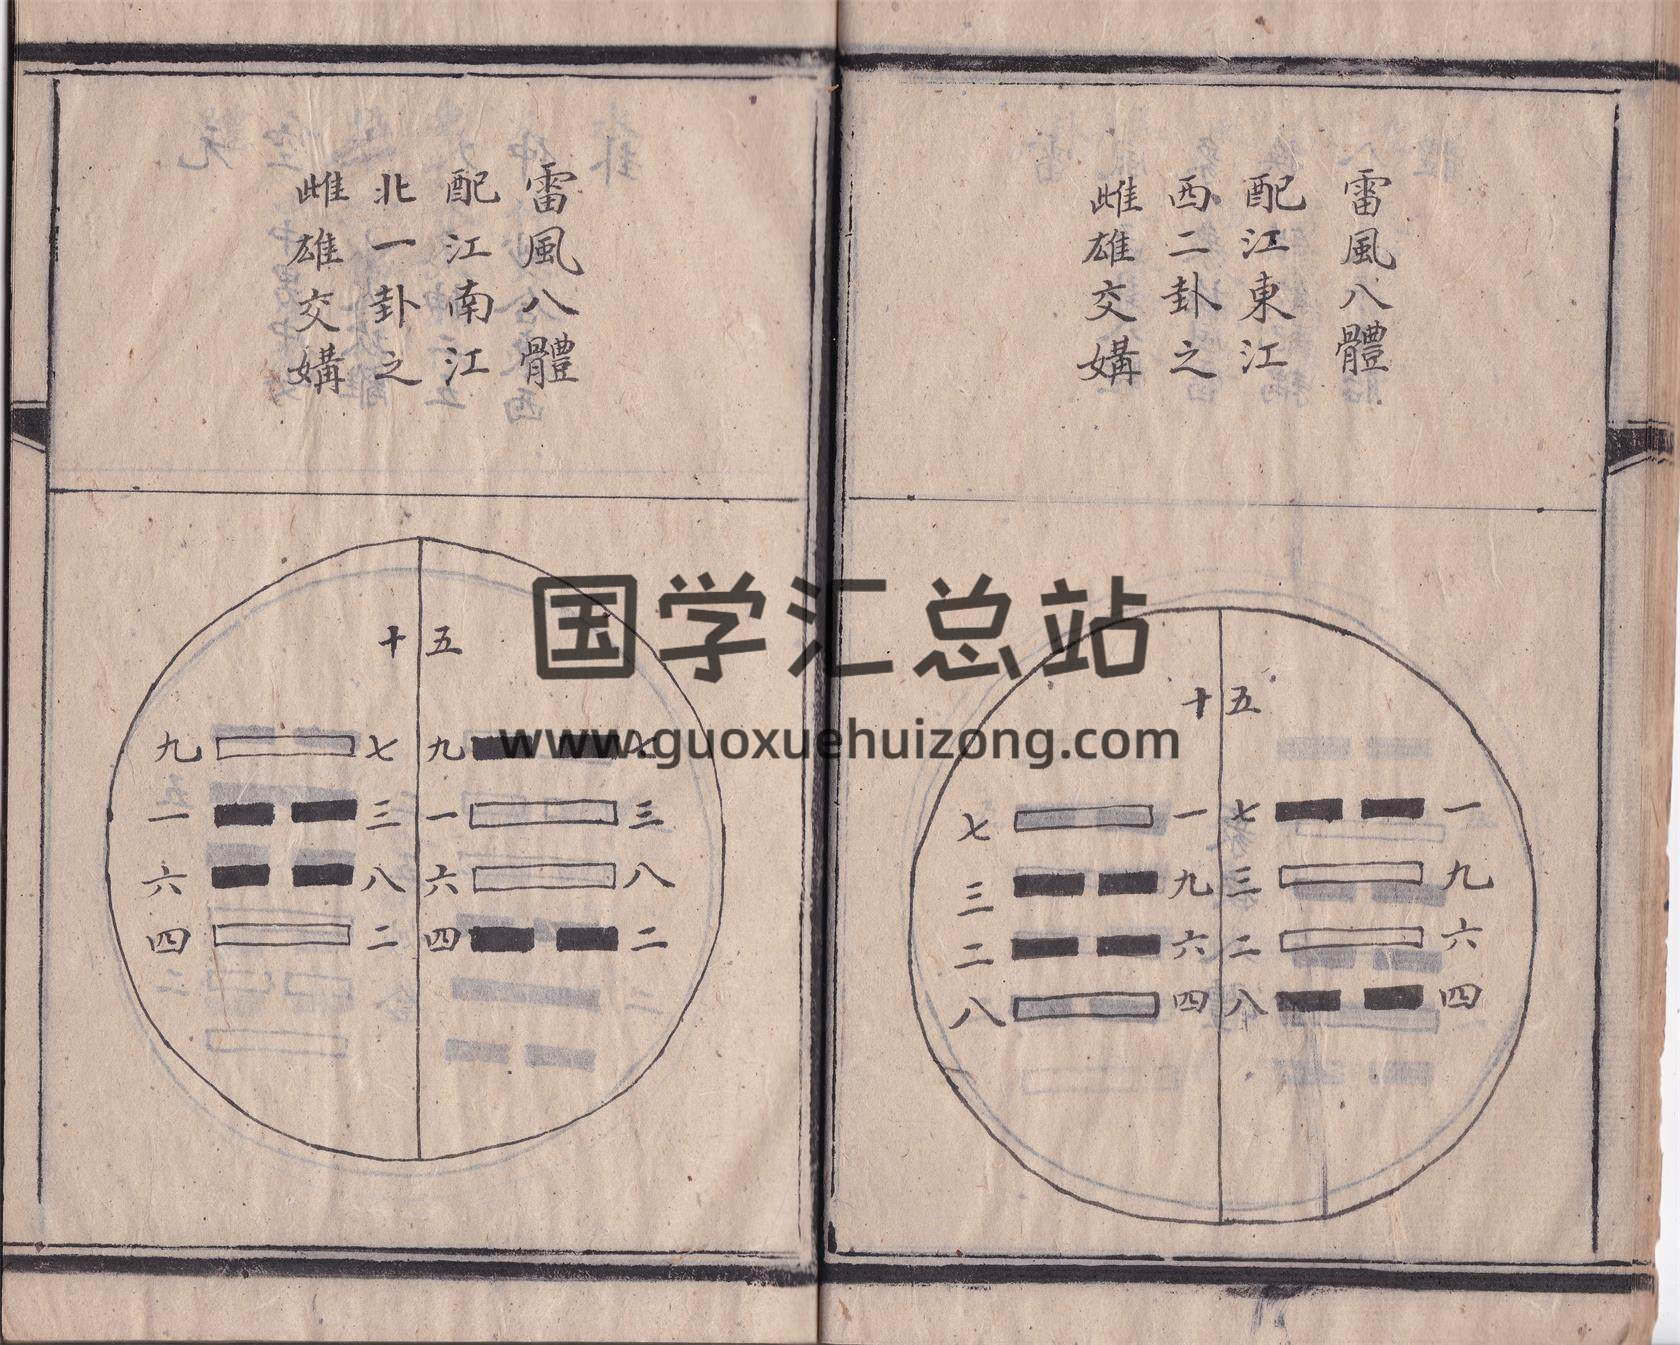 雷風八體
配江東江
西二卦之
雌雄交媾
十 五
七 一 七 一
三 九 三 九
二 六 二 六
八 四 八 四
雷風八體
配江南江
北一卦之
雌雄交媾
十 五
九 七 九 七
一 三 一 三
六 八 六 八
四 二 四 二
国学汇总站
www.guoxuehuizong.com